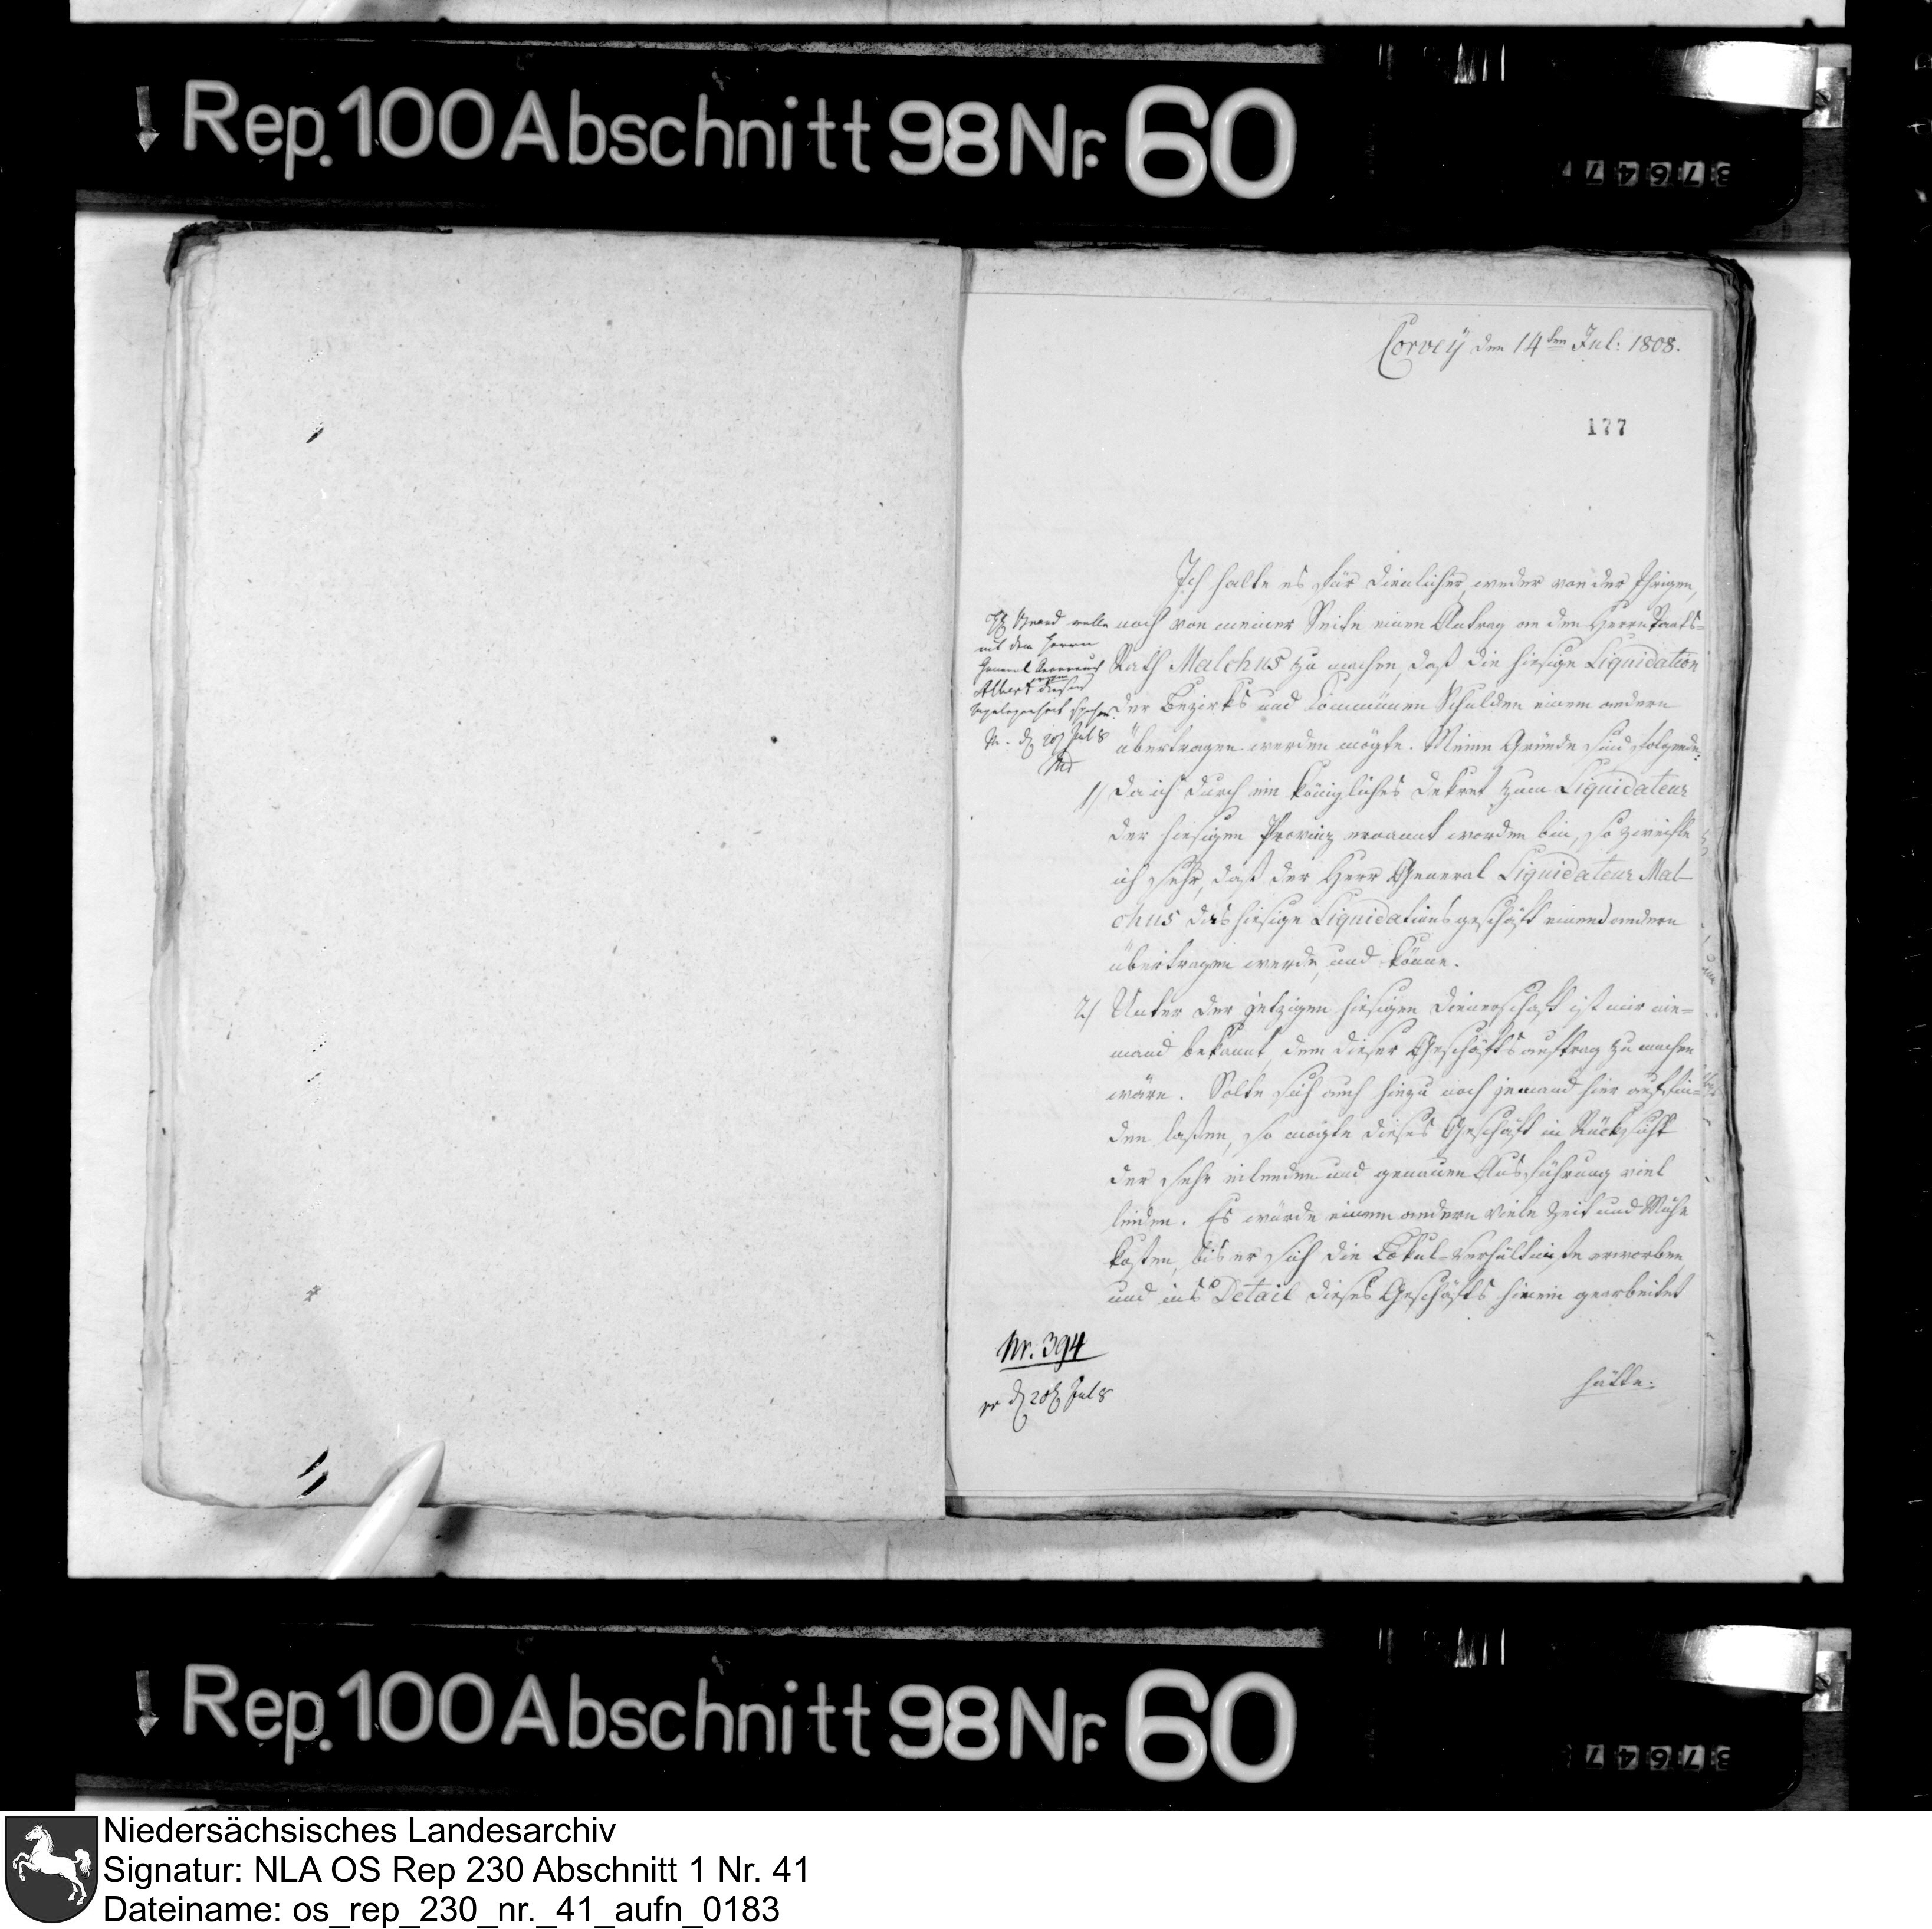 Rep. 100 Abschnitt 98 Nr. 60
37647
Corveÿ den 14ten Jul: 1808.
177
Ich halte es für dienlicher, weder von der Ihrigen,
noch von meiner Seite einen Antrag an den Herrn Staats-
Rath Malchus zu machen, daß die hiesige Liquidation
der Bezirks und Communen Schulden einem andern
übertragen werden mögte. Meine Gründe sind folgende:
1/ Da ich durch ein königliches Dekret zum Liquidateur
der hiesigen Provinz ernannt worden bin, so zweifle
ich sehr, daß der Herr General Liquidateur Mal-
chus das hiesige Liquidationsgeschäft einem andern
übertragen werde, und könne.
2/ Unter der jetzigen hiesigen Dienerschaft ist mir nie-
mand bekannt, dem dieser Geschäftsauftrag zu machen
wäre. Solte sich auch hiezu noch jemand hier auffin-
den laßen, so mögte dieses Geschäft in Rücksicht
der sehr eilenden und genauen Ausführung viel
leiden. Es würde einem andern viele Zeit und Mühe
kosten, bis er sich die Lokal-Verhältniße erworben,
und ins Detail dieses Geschäfts hinein gearbeitet
hätte.
wolle
mit dem Herrn
General
Albert dieser
Angelegenheit
Jul 8
Nr. 394
pr d 20 Jul 8
Rep. 100 Abschnitt 98 Nr. 60
37647
Niedersächsisches Landesarchiv
Signatur: NLA OS Rep 230 Abschnitt 1 Nr. 41
Dateiname: os_rep_230_nr._41_aufn_0183